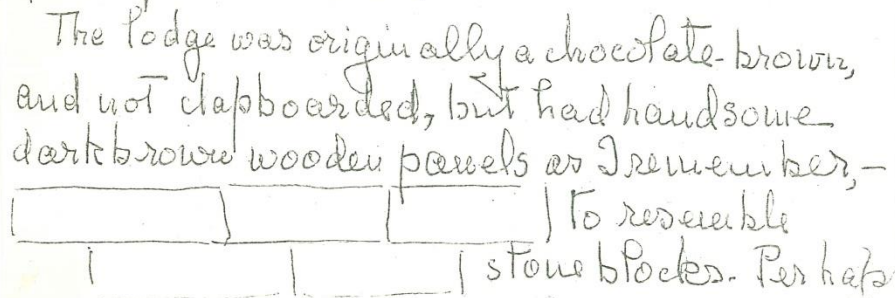 The lodge was originally a chocolate-brown,
and not clapboarded, but had handsome
darkbrown wooden panels as I remember,-
to resemble
stone blocks. Perhaps